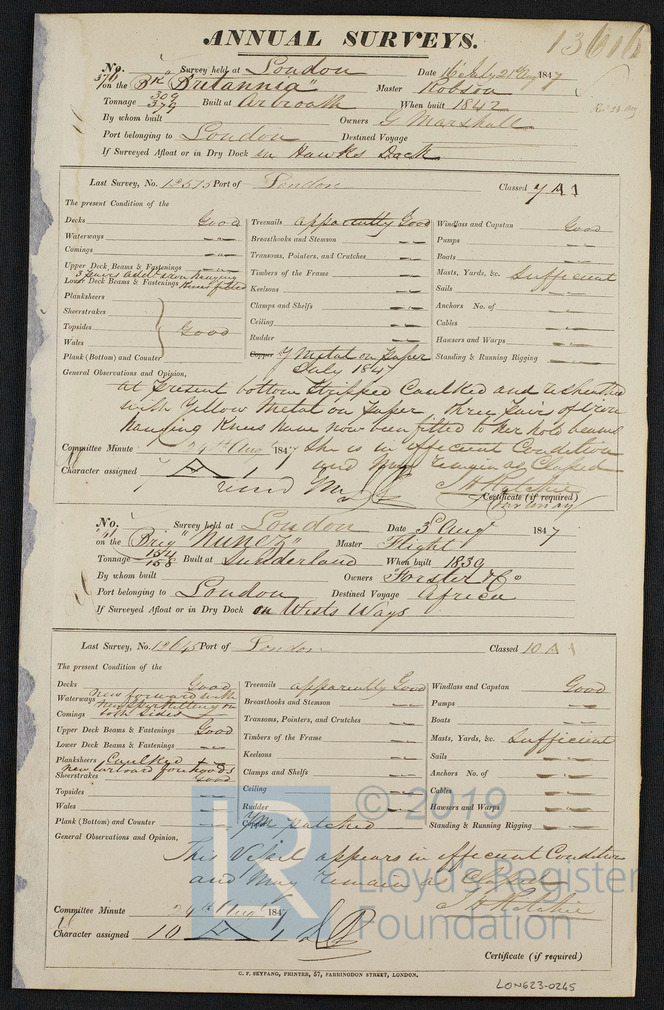 ANNUAL SURVEYS.
No. Survey held at London Date 16 July 21 Aug 1847
on the Bk "Britannia" Master Robson
Tonnage 309 379 Built at Arbroath When built 1842
By whom built Owners G Marshall
Port belonging to London Destined Voyage
If Surveyed Afloat or in Dry Dock in Hawks Dock
Last Survey, No. Port of London Classed 7 A 1
The present Condition of the
Decks Good Treenails apparently Good Windlass and Capstan Good
Waterways Breasthooks and Stemson Pumps
Comings Transoms, Pointers, and Crutches Boats
Upper Deck Beams & Fastenings Timbers of the Frame Masts, Yards, &c. Sufficient
3 pairs addl iron hanging
Lower Deck Beams & Fastenings Knees fitted Keelsons Sails
Planksheers Clamps and Shelfs Anchors No. of
Sheerstrakes Ceiling Cables
Topsides Good Rudder Hawsers and Warps
Wales Copper Y Metal on Paper Standing & Running Rigging
Plank (Bottom) and Counter July 1847
General Observations and Opinion,
at Present bottom stripped Caulked and resheathed
with Yellow Metal on Paper Three Pairs of Iron
hanging Knees have now been fitted to her hold beams
Committee Minute 24th Augt 1847 She is in efficient Condition
and may remain as Classed
Character assigned 7 A 1
Certificate (if required)
No. Survey held at London Date 3d Augt 1847
on the Brig "Nunez" Master Flight
Tonnage 154 158 Built at Sunderland When built 1839
By whom built Owners Forster & Co
Port belonging to London Destined Voyage Africa
If Surveyed Afloat or in Dry Dock on Wests Ways
Last Survey, No. Port of London Classed 10 A 1
The present Condition of the
Decks Good Treenails apparently Good Windlass and Capstan Good
Waterways New forward with
Breasthooks and Stemson Pumps
Comings both sides Transoms, Pointers, and Crutches Boats
Upper Deck Beams & Fastenings Good Timbers of the Frame Masts, Yards, &c. Sufficient
Lower Deck Beams & Fastenings Keelsons Sails
Planksheers Caulked
Clamps and Shelfs Anchors No. of
Sheerstrakes Good
Topsides Ceiling Cables
Wales Rudder Hawsers and Warps
Plank (Bottom) and Counter Copper YM patched Standing & Running Rigging
General Observations and Opinion,
This Vessel appears in efficient Condition
and May remain as Classed
Committee Minute 24th Augt 1847
Character assigned 10 A 1
Certificate (if required)
C. F. SEYFANG, PRINTER, 57, FARRINGDON STREET, LONDON.
LON623-0265
© 2019
LR
Lloyd's Register
Foundation